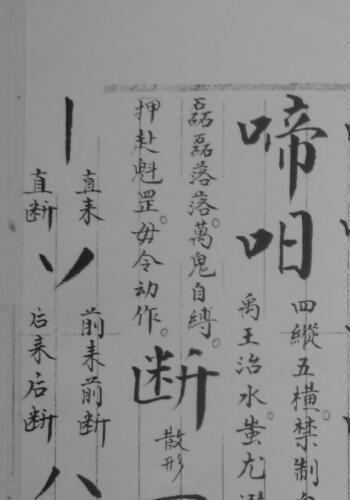 啼
四縱五橫。禁制
禹王治水。蚩尤
磊磊落落。萬鬼自縛。
押赴魁罡。毋令动作。
断
散形
丨
直来
直断
丷
前来前断
后来后断
八